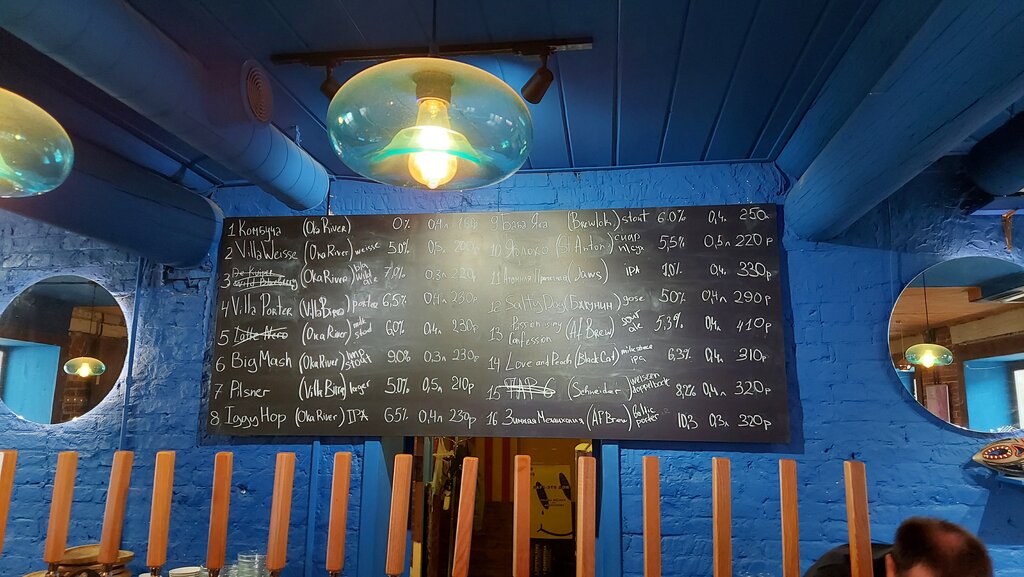 1 Комбуча (Oka River) 0% 0,4л
2 Villa Weisse (Oka River) weisse 5.0% 0,5л
3 (Oka River) wild ale 7.0% 0.3л 220р
4 Villa Porter (Villa Bierg) porter 6.5% 0,4л 230р
5 Latte Nero (Oka River) milk stout 6.0% 0.4л 230р
6 Big Mash (Oka River) stout 9.0% 0.3л 230р
7 Pilsner (Villa Bierg) lager 5.0% 0,5л 210р
8 Iggy Hop (Oka River) IPA 6.5% 0,4л 230р
9 Баба Яга (Brewlok) stout 6.0% 0,4л 250р
10 Яблоко (St Anton) сидр п/сух 5,5% 0,5л 220р
11 Атомная Прачечная (Jaws) IPA 0,4л 330р
12 Salty Dog (Бакунин) gose 5.0% 0,4л 290р
13 Passion Confession (AF Brew) sour ale 5.3% 0,4л 410р
14 Love and Peach (Black Cat) milkshake IPA 6,3% 0,4л 310р
15 TAP 6 (Schneider) weizen doppelbock 8,2% 0,4л 320р
16 Зимняя Меланхолия (AF Brew) baltic porter 10,3 0,3л 320р